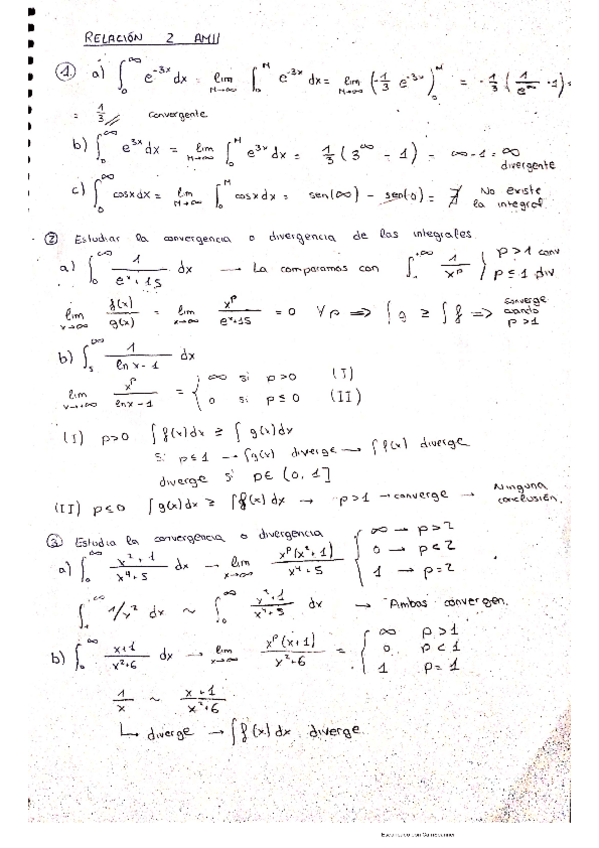 RELACIÓN 2 AMII
① a) ∫₀^∞ e^{-3x} dx = lim_{M→∞} ∫₀^M e^{-3x} dx = lim_{M→∞} (-1/3 e^{-3x})₀^M = -1/3 (1/e^∞ - 1) =
= 1/3 // convergente
b) ∫₀^∞ e^{3x} dx = lim_{M→∞} ∫₀^M e^{3x} dx = 1/3 (3^∞ - 1) = ∞ - 1 = ∞
divergente
c) ∫₀^∞ cosx dx = lim_{M→∞} ∫₀^M cosx dx = sen(∞) - sen(0) = ∄ No existe
la integral
② Estudiar la convergencia o divergencia de las integrales
a) ∫₀^∞ 1/(e^x + 15) dx → La comparamos con ∫₁^{+∞} 1/x^p { p > 1 conv
p ≤ 1 div
lim_{x→∞} f(x)/g(x) = lim_{x→∞} x^p/(e^x+15) = 0 ∀p ⟹ ∫g ≥ ∫f ⟹ converge
cuando
p > 1
b) ∫₅^∞ 1/(ln x - 1) dx
lim_{x→+∞} x^p/(lnx - 1) = { ∞ si p > 0 (I)
0 si p ≤ 0 (II)
(I) p>0 ∫f(x)dx ≥ ∫g(x)dx
Si p≤1 → ∫g(x) diverge → ∫f(x) diverge
diverge si p∈ (0, 1]
(II) p≤0 ∫g(x)dx ≥ ∫f(x)dx → p>1 → converge → Ninguna
conclusión.
③ Estudia la convergencia o divergencia
a) ∫₀^∞ (x²+1)/(x⁴+5) dx → lim_{x→∞} x^p(x²+1)/(x⁴+5) { ∞ → p>2
0 → p<2
1 → p=2
∫₁^∞ 1/x² dx ~ ∫₀^∞ (x²+1)/(x⁴+5) dx → Ambas convergen.
b) ∫₀^∞ (x+1)/(x²+6) dx → lim_{x→∞} x^p(x+1)/(x²+6) = { ∞ p>1
0 p<1
1 p=1
1/x ~ (x+1)/(x²+6)
↳ diverge → ∫f(x)dx diverge.